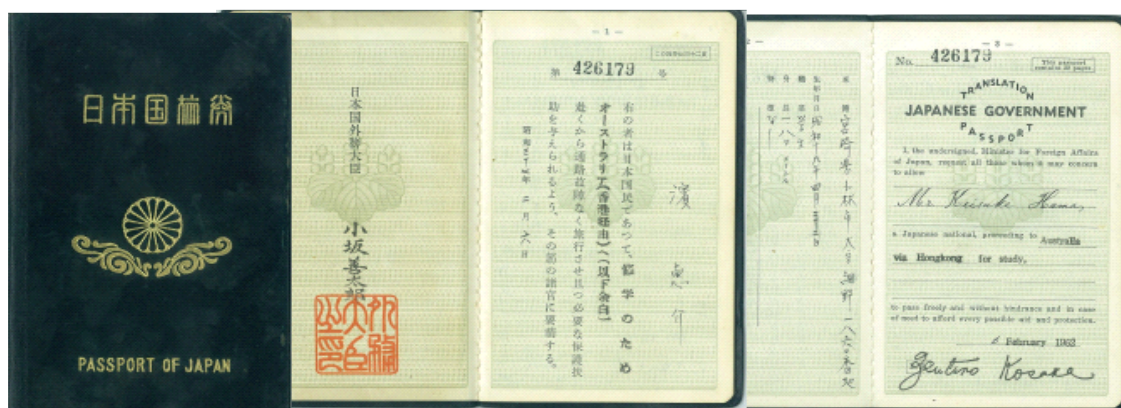 日本国旅券
PASSPORT OF JAPAN
日本国外務大臣
小坂善太郎
外務大臣之印
— 1 —
第 426179 号
右の者は日本国民であつて、修学のため
オーストラリア(香港経由)へ(以下余白)
赴くから通路故障なく旅行させ且つ必要な保護扶
助を与えられるよう、その筋の諸官に要請する。
濱 恵介
二月六日
— 3 —
No. 426179
This passport
contains 32 pages
TRANSLATION
JAPANESE GOVERNMENT
PASSPORT
I, the undersigned, Minister for Foreign Affairs
of Japan, request all those whom it may concern
to allow
Mr. Keisuke Hama,
a Japanese national, proceeding to Australia
via Hongkong for study,
to pass freely and without hindrance and in case
of need to afford every possible aid and protection.
6 February 1962
Zentaro Kosaka